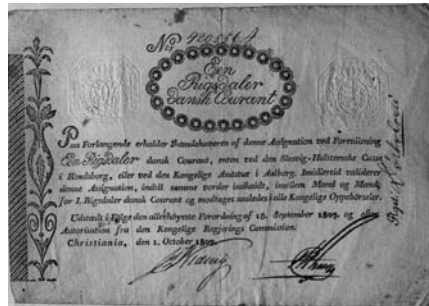 No
Een
Rigsdaler
Dansk Courant
Paa Forlangende erholder Ihændehaveren af denne Assignation ved Forviisning
Een Rigsdaler dansk Courant, enten ved den Slesvig-Holsteenske Casse
i Rendsborg, eller ved den Kongelige Institut i Aalborg. Imidlertid validerer
denne Assignation, indtil samme vorder indløst, imellem Mand og Mand,
for 1. Rigsdaler dansk Courant og modtages saaledes i alle Kongelige Oppebørseler.
Udstædt i Følge den allerhøyeste Forordning af 18. September 1807. og efter
Autorisation fra den Kongelige Regjerings Commission.
Christiania, den 1. October 1807.